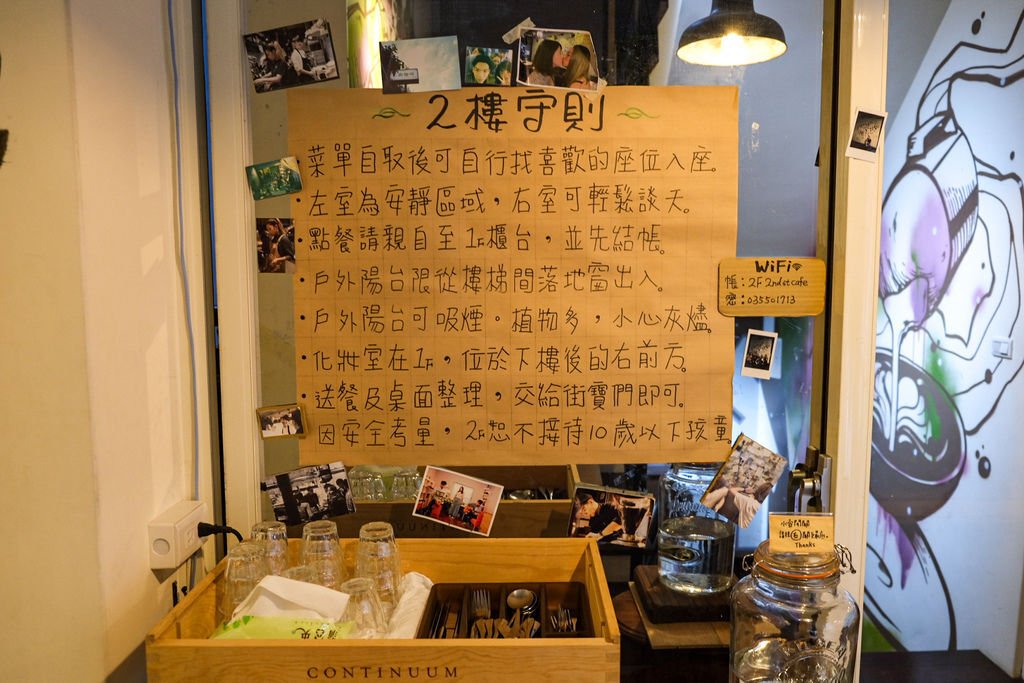 2樓守則
菜單自取後可自行找喜歡的座位入座。
・左室為安靜區域，右室可輕鬆談天。
・點餐請親自至1F櫃台，並先結帳。
・戶外陽台限從樓梯間落地窗出入。
・戶外陽台可吸煙。植物多，小心灰燼。
・化妝室在1F，位於下樓後的右前方。
・送餐及桌面整理，交給街寶們即可。
因安全考量，2F恕不接待10歲以下孩童
WiFi
帳：2F 2nd st cafe
密：035501713
Thanks
CONTINUUM